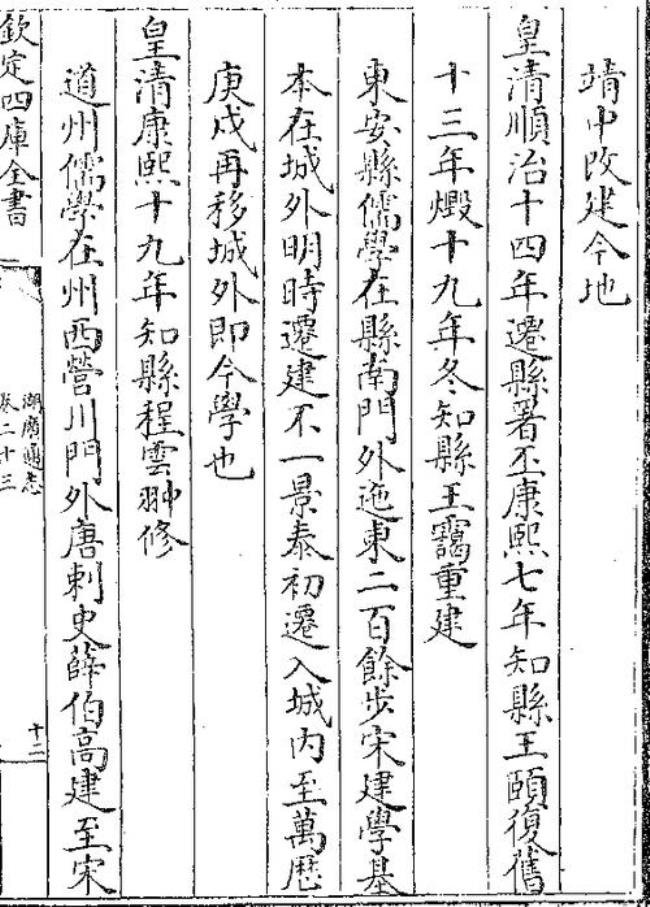 靖中改建今地
皇清順治十四年遷縣署丕康熙七年知縣王頤復舊
十三年燬十九年冬知縣王靄重建
東安縣儒學在縣南門外迤東二百餘步宋建學基
本在城外明時遷建不一景泰初遷入城内至萬歴
庚戍再移城外即今學也
皇清康熙十九年知縣程雲翀修
道州儒學在州西營川門外唐刺史薛伯高建至宋
欽定四庫全書
湖廣通志
卷二十三
十二